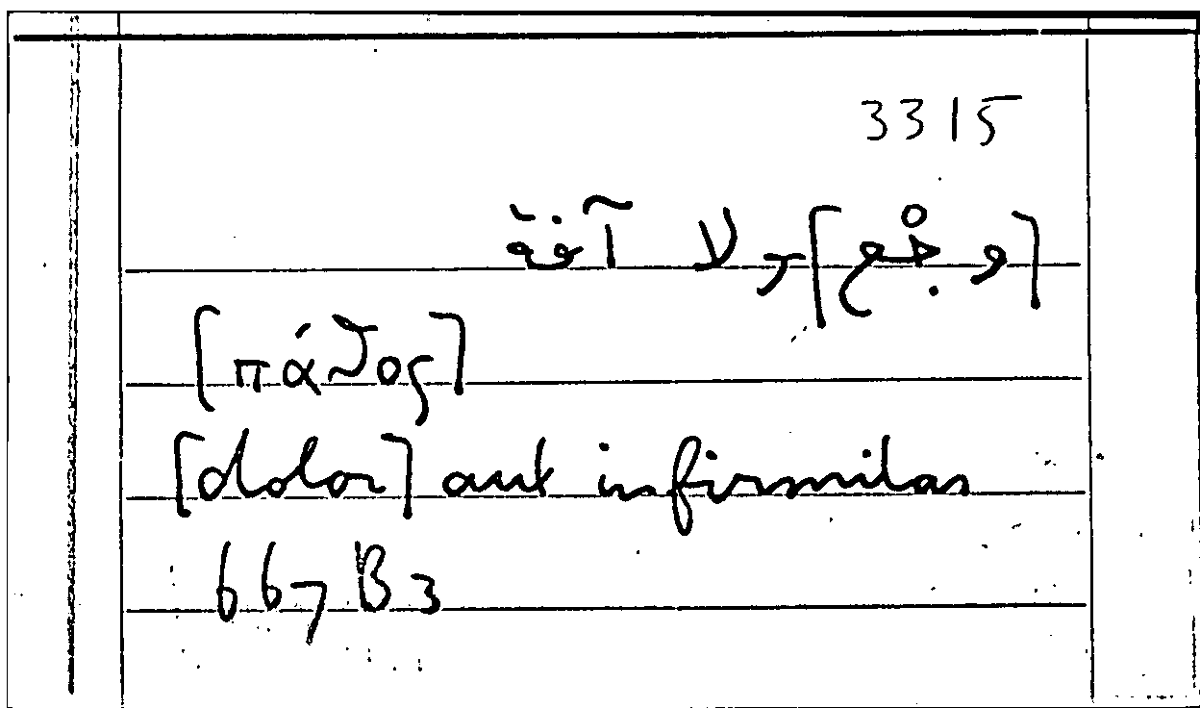 3315
[وجع] ولا آفة
[πάθος]
[dolor] aut infirmitas
667 B 3